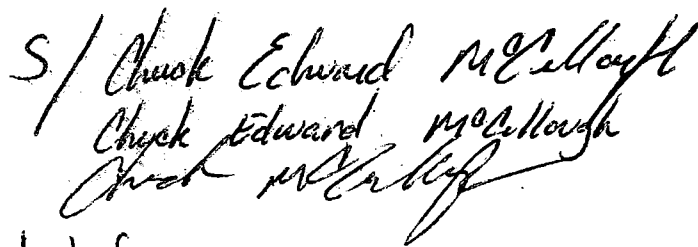 S/ Chuck Edward McCullough
Chuck Edward McCullough
Chuck McCullough